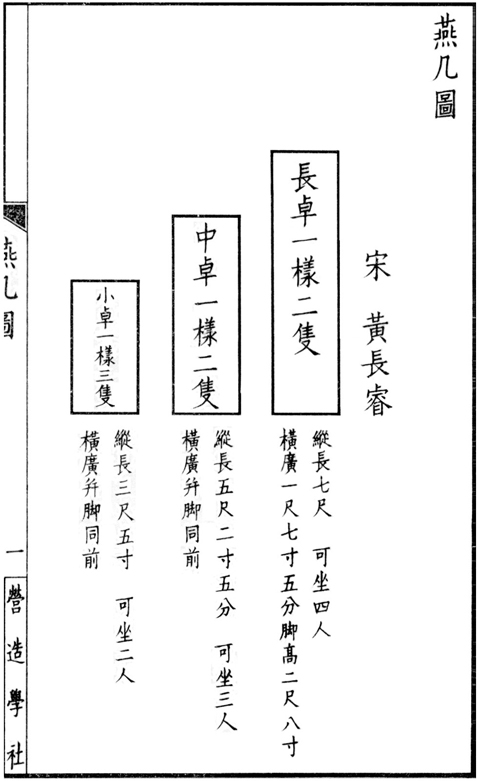 燕几圖
宋　黃長睿
長卓一樣二隻
縱長七尺　可坐四人
橫廣一尺七寸五分脚高二尺八寸
中卓一樣二隻
縱長五尺二寸五分　可坐三人
橫廣并脚同前
小卓一樣三隻
縱長三尺五寸　可坐二人
橫廣并脚同前
燕几圖
一
營造學社